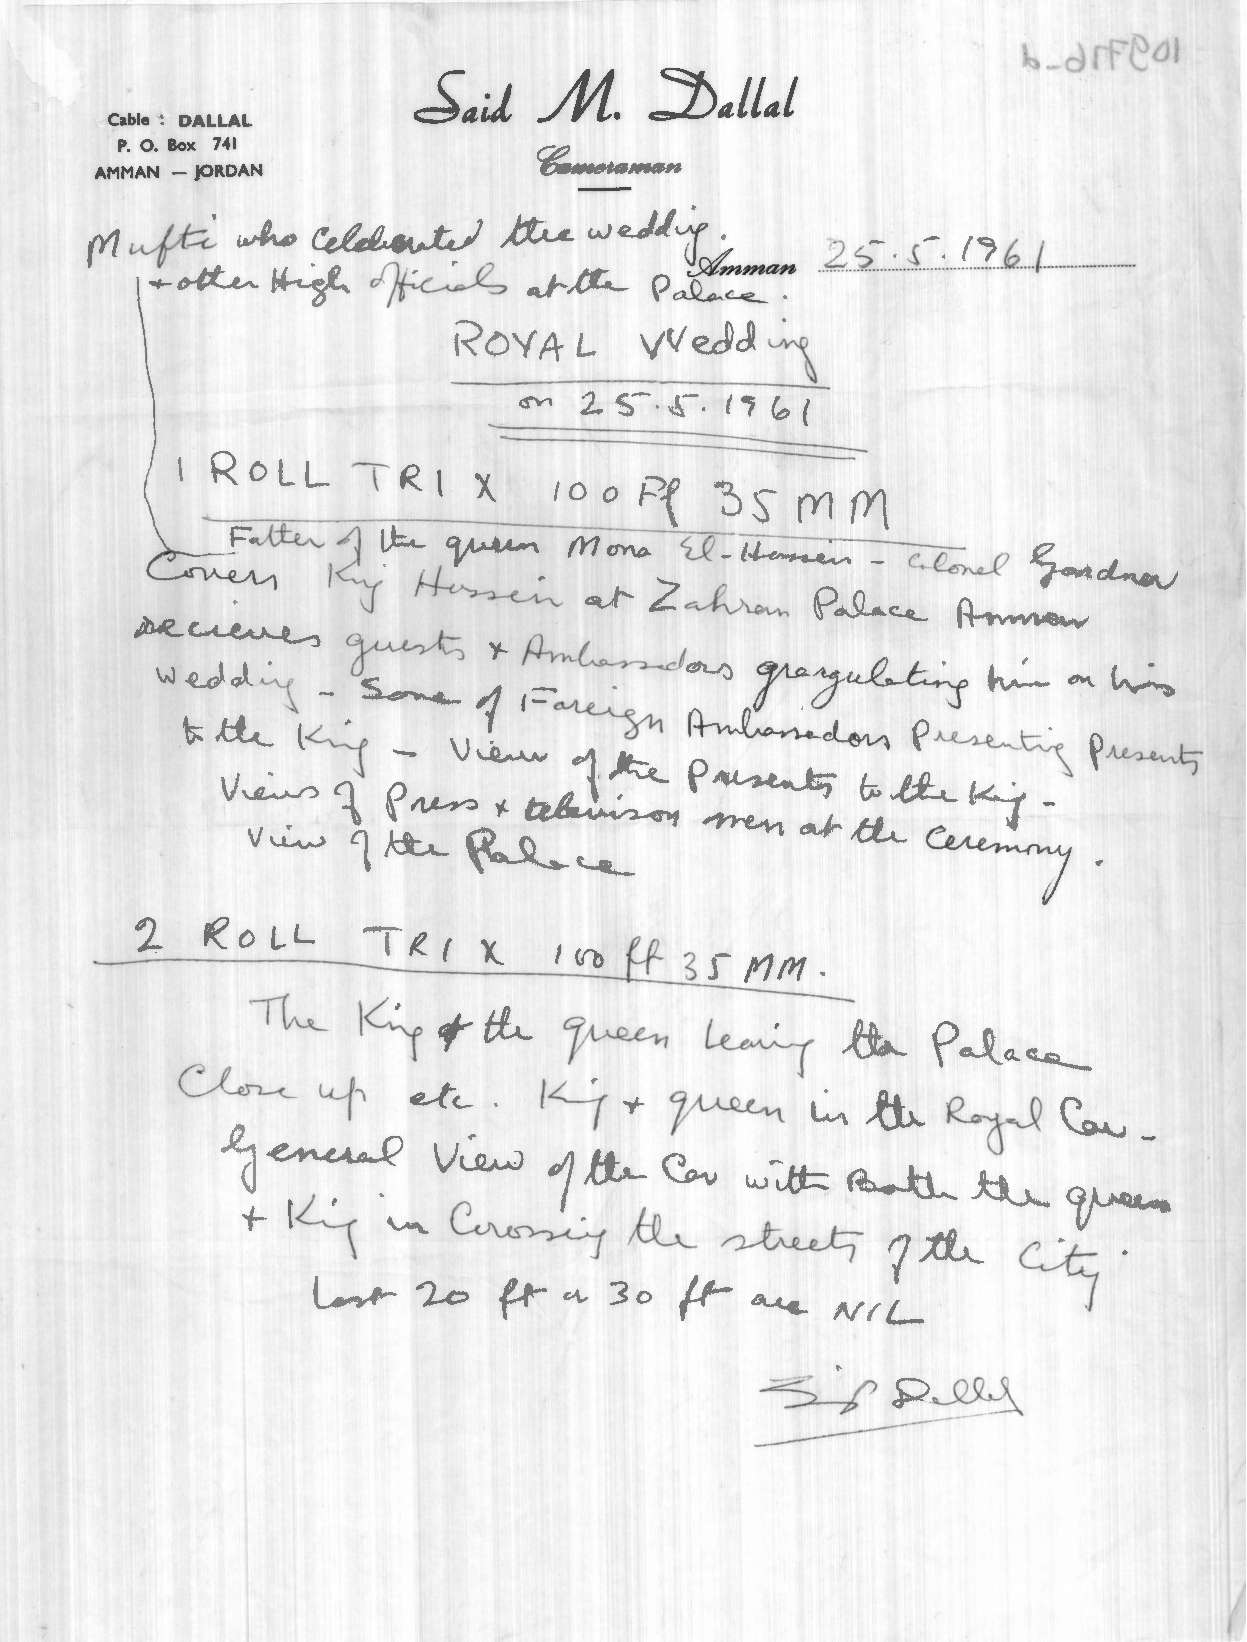 109776-d
Said M. Dallal
Cameraman
Cable : DALLAL
P. O. Box 741
AMMAN — JORDAN
Mufti who celebrated the wedding.
+ other High officials at the Palace.
Amman 25.5.1961
ROYAL Wedding
on 25.5.1961
1 ROLL TRI X 100 Ft 35 MM
Father of the queen Mona El-Hussein - Colonel Gardner
Covers King Hussein at Zahran Palace Amman
recieves guests + Ambassadors grargulating him on his
wedding - Some of Foreign Ambassadors Presenting Presents
to the King - View of the Presents to the King -
Views of Press + televison men at the Ceremony.
View of the Palace
2 ROLL TRI X 100 ft 35 MM.
The King & the queen leaving the Palace
Close up etc. King + queen in the Royal Car -
General View of the Car with Both the queen
+ King in Crossing the streets of the City
Last 20 ft or 30 ft are NIL
Dallal